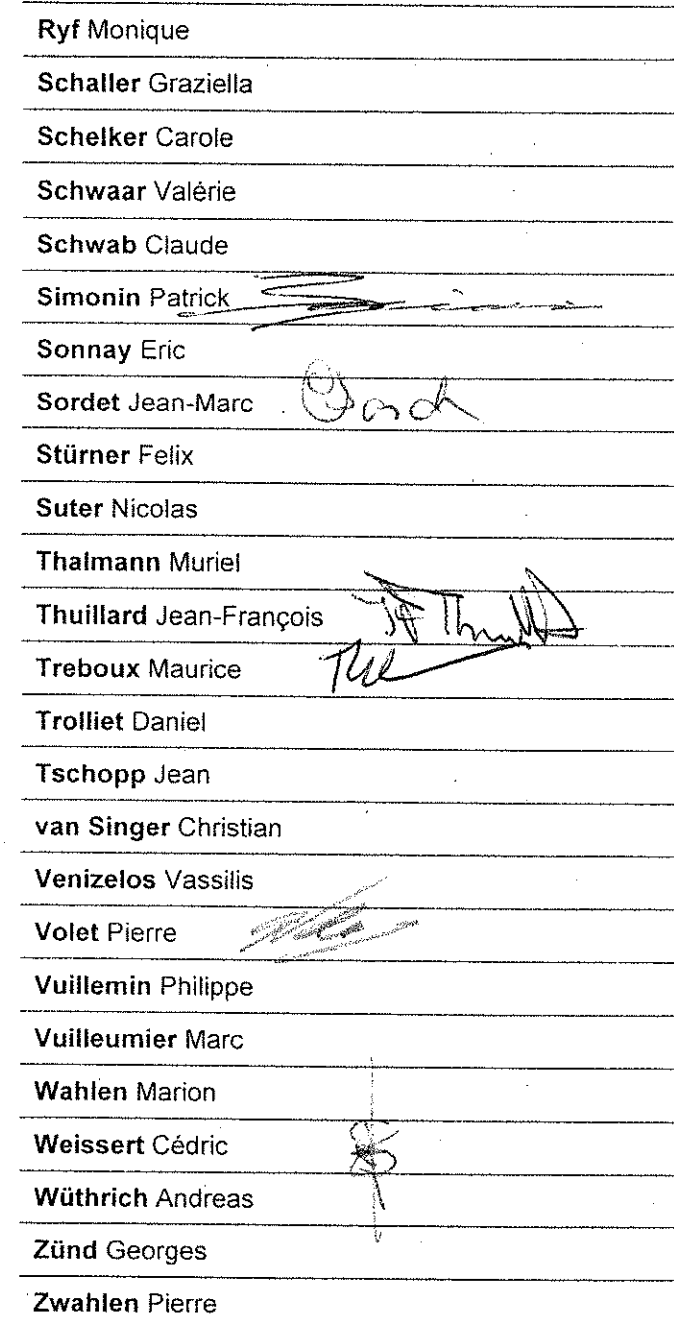 Ryf Monique
Schaller Graziella
Schelker Carole
Schwaar Valérie
Schwab Claude
Simonin Patrick
Sonnay Eric
Sordet Jean-Marc
Stürner Felix
Suter Nicolas
Thalmann Muriel
Thuillard Jean-François
Treboux Maurice
Trolliet Daniel
Tschopp Jean
van Singer Christian
Venizelos Vassilis
Volet Pierre
Vuillemin Philippe
Vuilleumier Marc
Wahlen Marion
Weissert Cédric
Wüthrich Andreas
Zünd Georges
Zwahlen Pierre